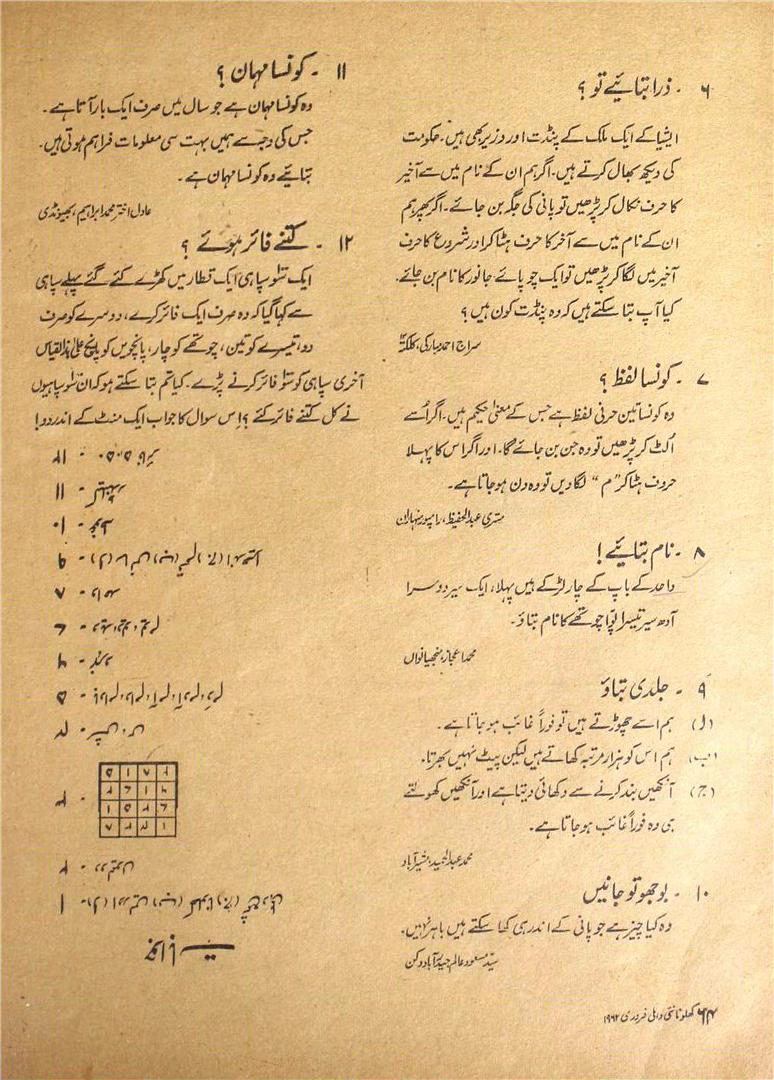 ۶ - ذرا بتائیے تو ؟
ایشیا کے ایک ملک کے پنڈت اور وزیر بھی ہیں۔ حکومت
کی دیکھ بھال کرتے ہیں۔ اگر ہم ان کے نام میں سے آخیر
کا حرف نکال کر پڑھیں تو پانی کی جگہ بن جائے۔ اگر پھر ہم
ان کے نام میں سے آخر کا حرف ہٹا کر اور شروع کا حرف
آخیر میں لگا کر پڑھیں تو ایک چوپائے جانور کا نام بن جائے۔
کیا آپ بتا سکتے ہیں کہ وہ پنڈت کون ہیں ؟
سراج احمد مبارکی، کلکتہ
۷ - کونسا لفظ ؟
وہ کونسا تین حرفی لفظ ہے جس کے معنی حکیم ہیں۔ اگر اُسے
اُلٹ کر پڑھیں تو وہ جن بن جائے گا۔ اور اگر اس کا پہلا
حروف ہٹا کر "م" لگا دیں تو وہ دن ہو جاتا ہے۔
مستری عبدالحفیظ، رامپور
۸ - نام بتائیے !
واحد کے باپ کے چار لڑکے ہیں پہلا، ایک سیر دوسرا
آدھ سیر تیسرا پوّا چوتھے کا نام بتاؤ۔
محمد اعجاز،
۹ - جلدی بتاؤ
(ل) ہم اسے چھوڑتے ہیں تو فوراً غائب ہو جاتا ہے۔
(ب) ہم اس کو ہزار مرتبہ کھاتے ہیں لیکن پیٹ نہیں بھرتا۔
(ج) آنکھیں بند کرنے سے دکھائی دیتا ہے اور آنکھیں کھولتے
ہی وہ فوراً غائب ہو جاتا ہے۔
محمد عبدالحمید، بشیرآباد
۱۰ - بوجھو تو جانیں
وہ کیا چیز ہے جو پانی کے اندر ہی کھا سکتے ہیں باہر نہیں۔
سیّد مسعود عالم حیدرآباد دکن
۶۴ کھلونا نئی دہلی فروری ۱۹۶۲
۱۱ - کونسا مہمان ؟
وہ کونسا مہمان ہے جو سال میں صرف ایک بار آتا ہے۔
جس کی وجہ سے ہمیں بہت سی معلومات فراہم ہوتی ہیں۔
بتائیے وہ کونسا مہمان ہے۔
عادل اختر محمد ابراہیم، بھیونڈی
۱۲ - کتنے فائر ہوئے ؟
ایک سَو سپاہی ایک قطار میں کھڑے کئے گئے پہلے سپاہی
سے کہا گیا کہ وہ صرف ایک فائر کرے، دوسرے کو صرف
دو، تیسرے کو تین، چوتھے کو چار، پانچویں کو پانچ علیٰ ہذالقیاس
آخری سپاہی کو سَو فائر کرنے پڑے۔ کیا تم بتا سکتے ہو کہ ان سَو سپاہیوں
نے کل کتنے فائر کئے ؟ اس سوال کا جواب ایک منٹ کے اندر دو!
جوابات
۱ -
۲ -
۳ -
۴ -
۵ -
۶ - نہرو
۷ -
۸ - واحد
۹ -
۱۰ - غوطہ
۱۱ -
۱۲ - ۵۰۵۰ فائر